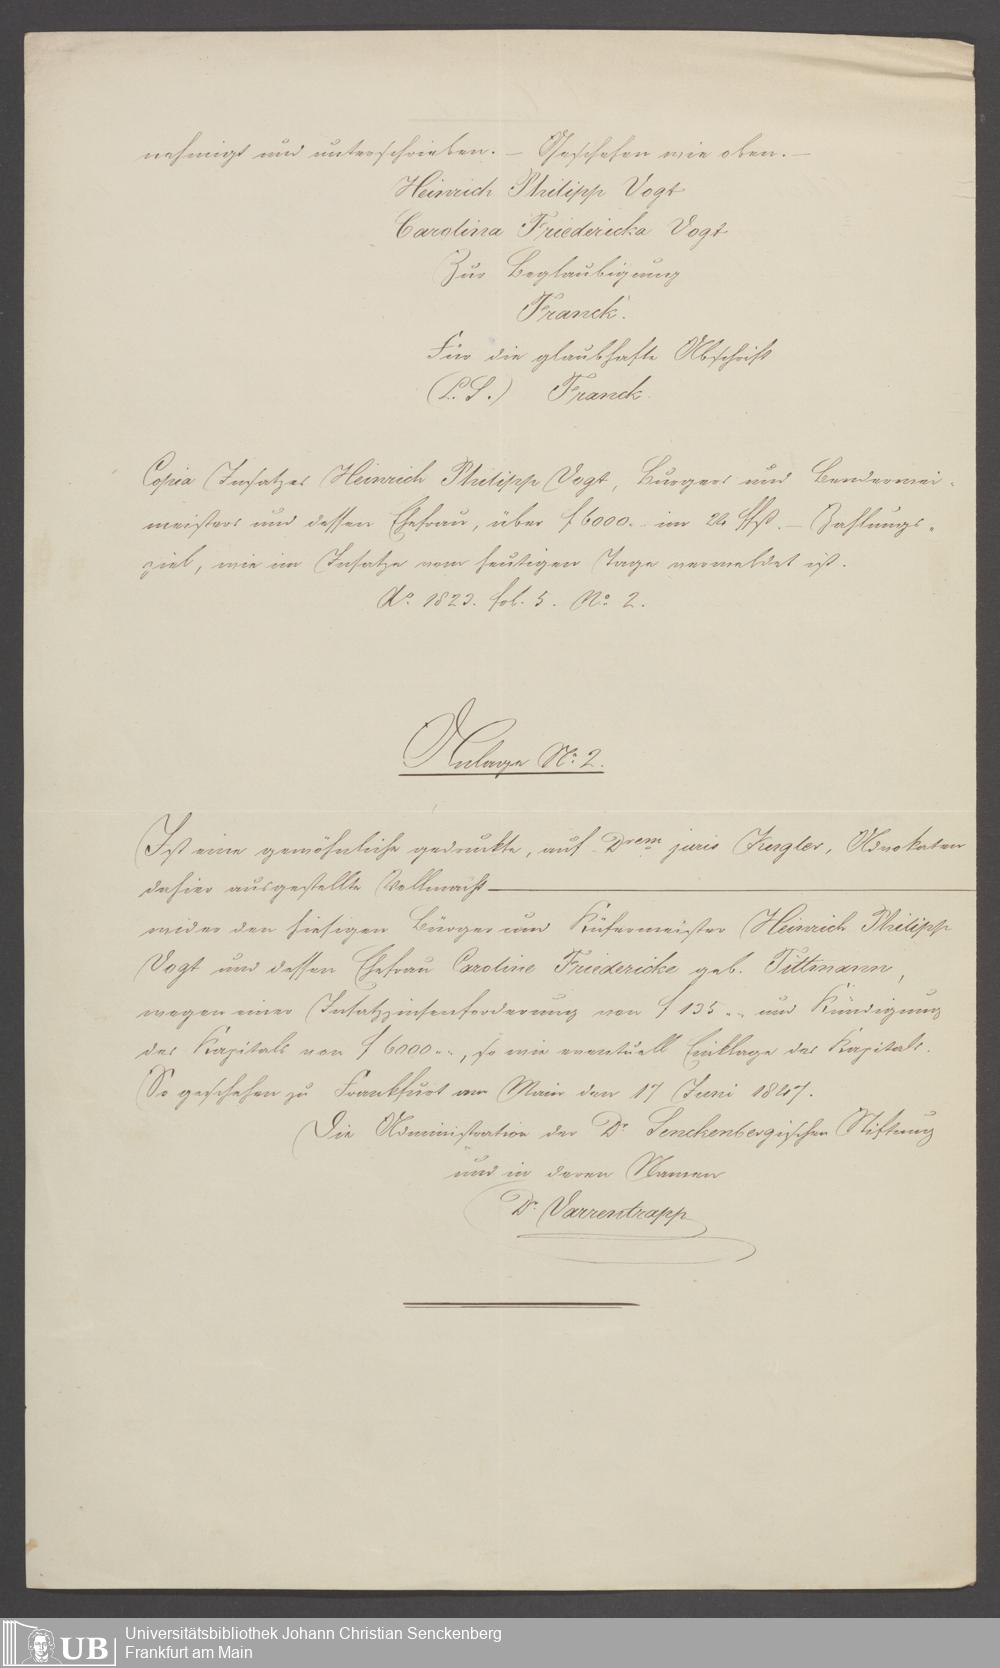 nehmigt und unterschrieben. – Geschehen wie oben. –
Heinrich Philipp Vogt
Carolina Friedericka Vogt
Zur Beglaubigung
Franck.
Für die glaubhafte Abschrift
(L. S.) Franck.
Copia Insatzes Heinrich Philipp Vogt, Burgers und Bendermei-
meisters und dessen Ehefrau, über f 6000. im 24 ffß. – Zahlungs-
ziel, wie im Insatze vom heutigen Tage vermeldet ist.
Ao. 1823. fol. 5. No. 2.
Anlage No. 2.
Ist eine gewöhnliche gedruckte, auf Drem juris Kugler, Advokaten
dahier ausgestellte Vollmacht
wider den hiesigen Bürger und Küfermeister Heinrich Philipp
Vogt und dessen Ehefrau Caroline Friedericke geb. Tittmann,
wegen einer Insatzzinsenforderung von f 135 „ „ und Kündigung
des Kapitals von f 6000 „ „, so wie eventuell Einklage des Kapitals.
So geschehen zu Frankfurt am Main den 17 Juni 1847.
Die Administration der Dr. Senckenbergischen Stiftung
und in deren Namen
Dr. Varrentrapp
UB
Universitätsbibliothek Johann Christian Senckenberg
Frankfurt am Main